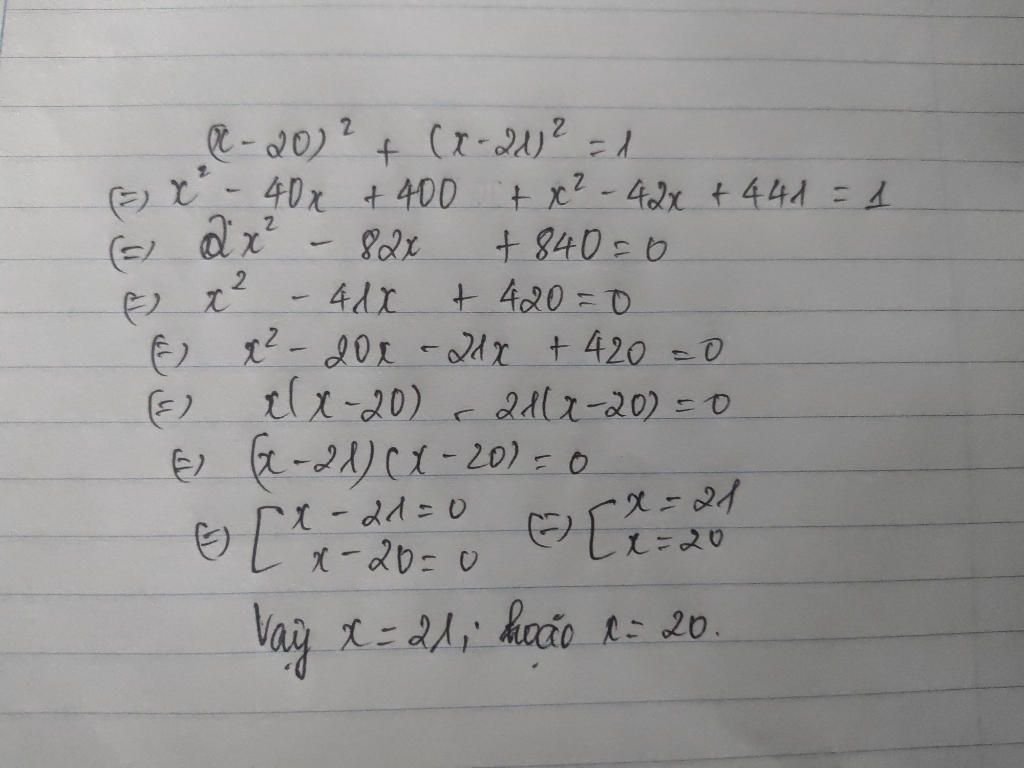 (x - 20)² + (x - 21)² = 1
(=) x² - 40x + 400 + x² - 42x + 441 = 1
(=) 2x² - 82x + 840 = 0
(=) x² - 41x + 420 = 0
(=) x² - 20x - 21x + 420 = 0
(=) x(x - 20) - 21(x - 20) = 0
(=) (x - 21)(x - 20) = 0
(=) [x - 21 = 0 (=) [x = 21
x - 20 = 0 x = 20
Vậy x = 21; hoặc x = 20.